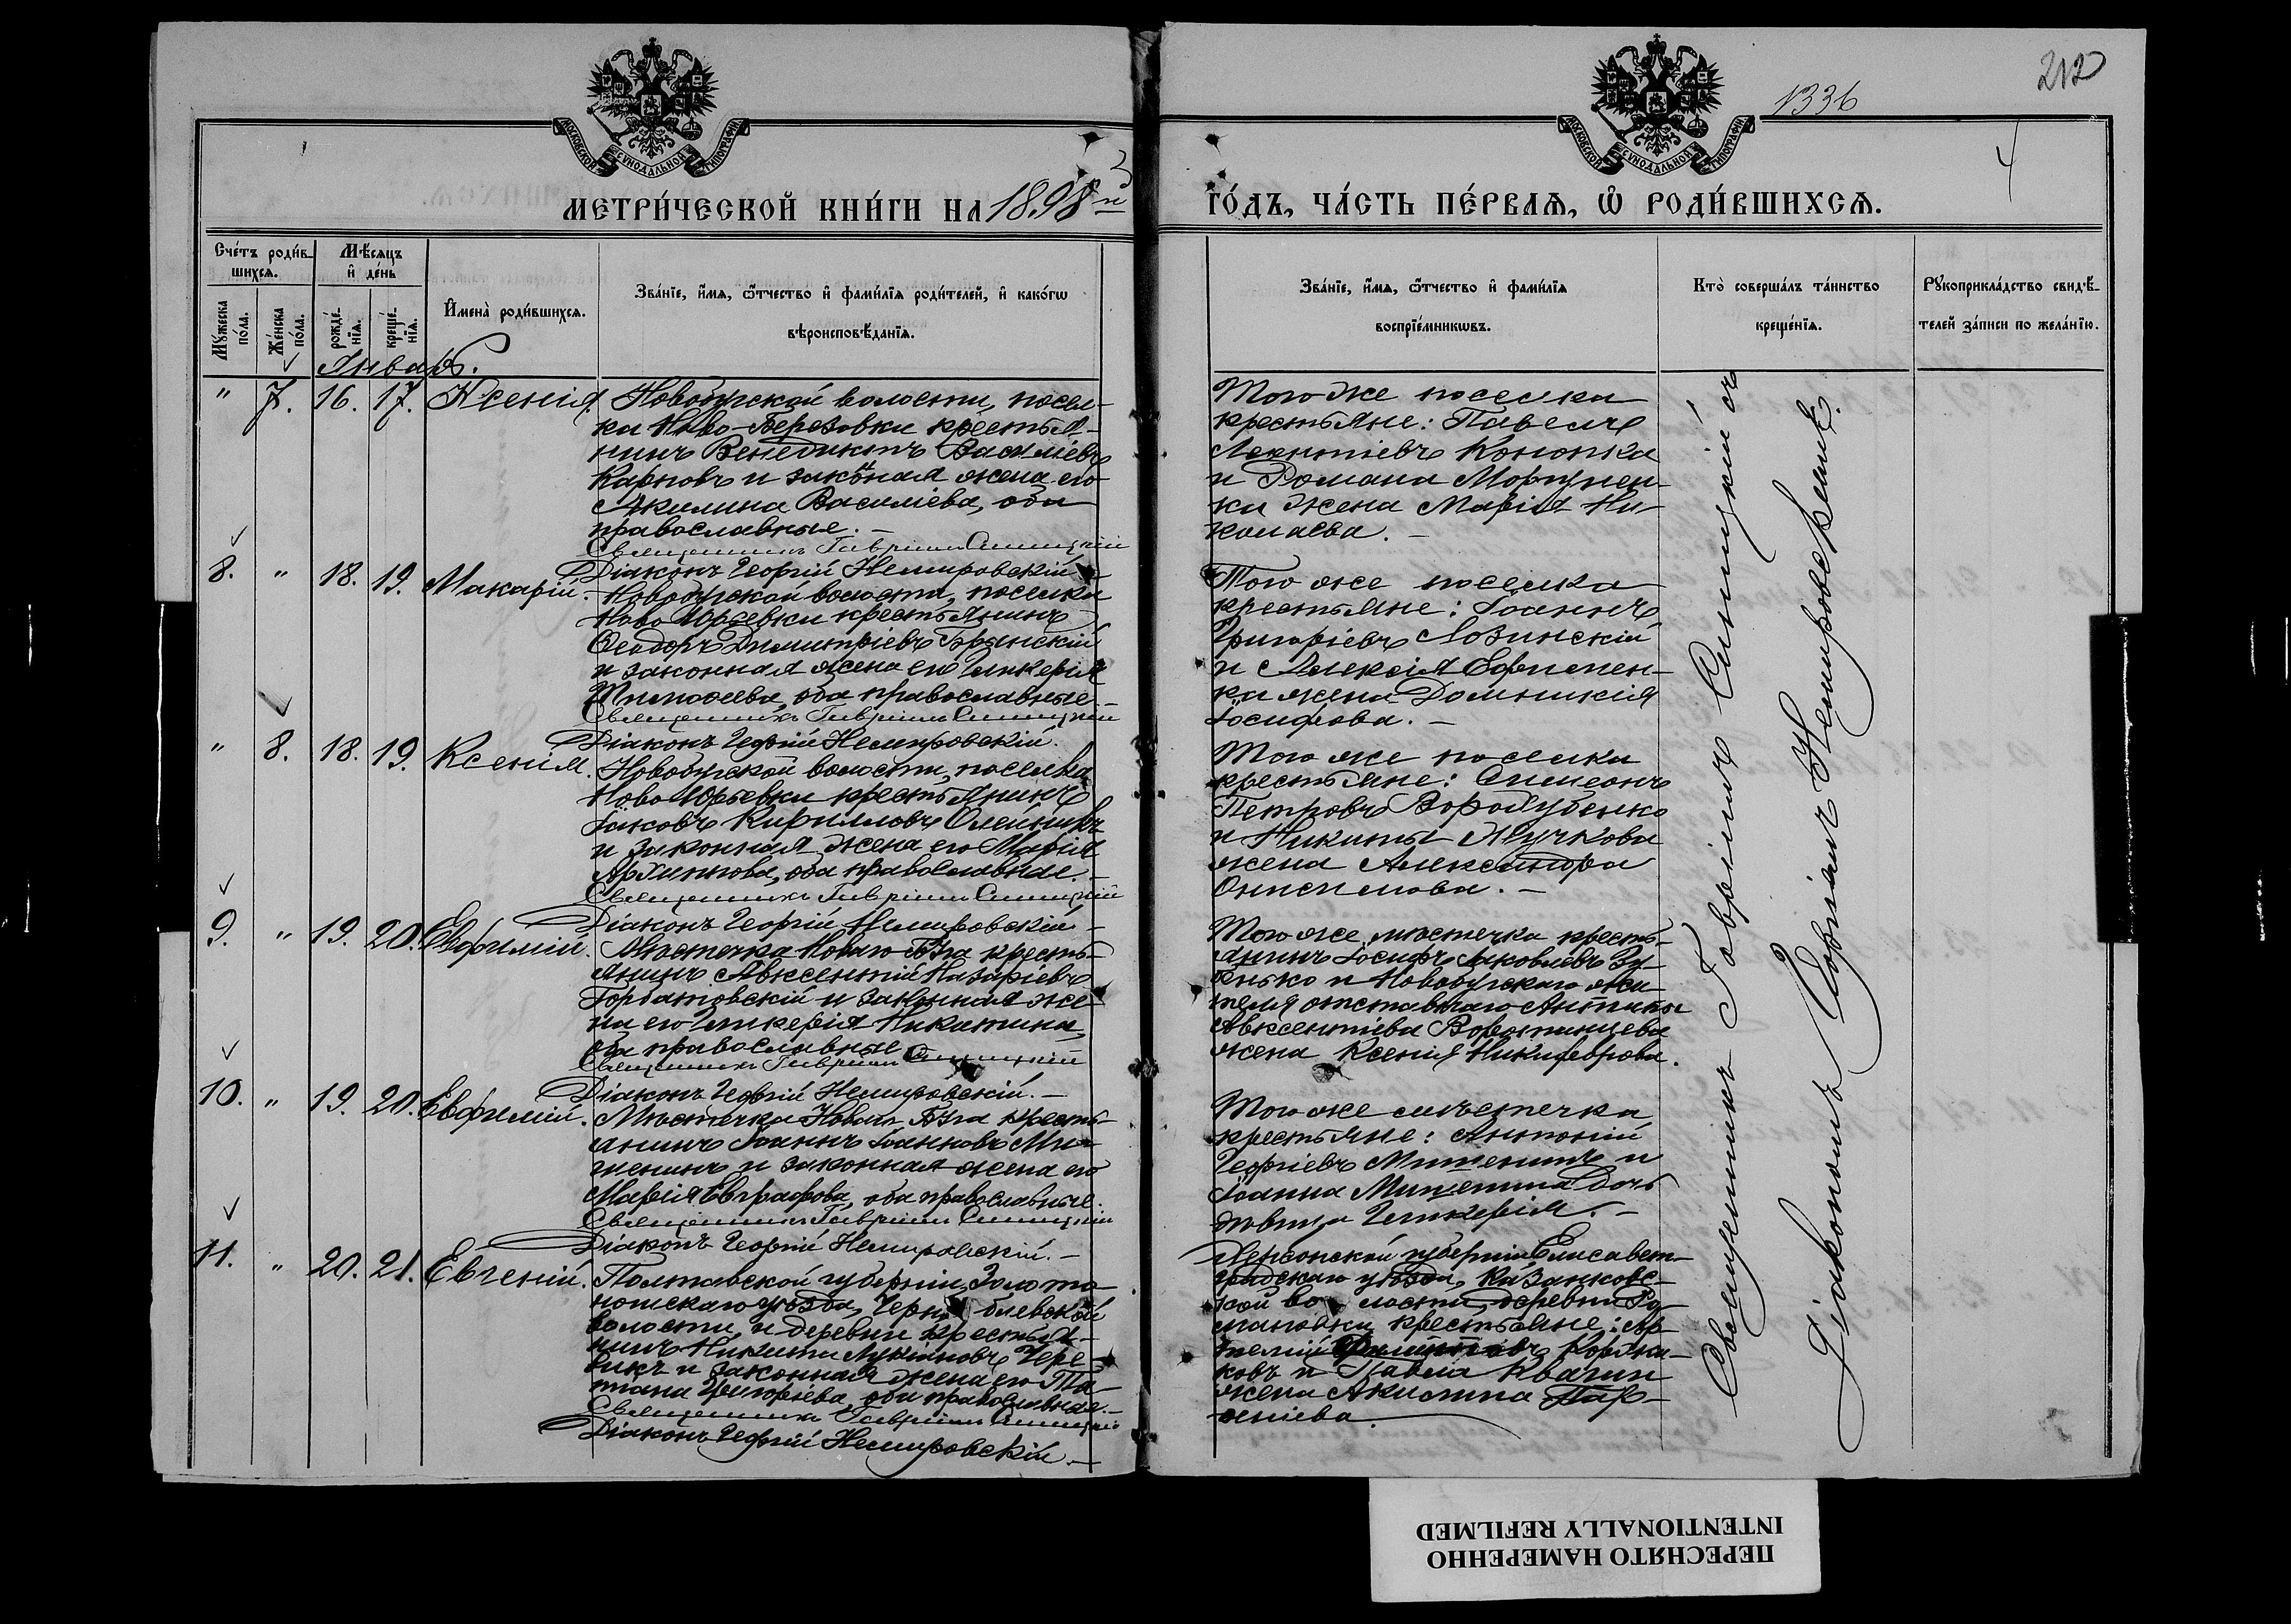 1336
212
4
МЕТРИ́ЧЕСКОЙ КНИ́ГИ НА 1898й
ГО́ДЪ, ЧА́СТЬ ПЕ́РВАѦ, Ѡ҆ РОДИ́ВШИХСѦ.
Сче́тъ роди́в-
шихсѧ.
Мѣ́сяцъ
и҆ де́нь
Мꙋ́жеска
по́ла.
Же́нска
по́ла.
рожде́-
нїѧ.
креще́-
нїѧ.
И҆мена̀ роди́вшихсѧ.
Зва́нїе, и҆́мѧ, ѻ҆́тчество и҆ фами́лїѧ роди́телей, и҆ како́гѡ
вѣроисповѣ́данїѧ.
Зва́нїе, и҆́мѧ, ѻ҆́тчество и҆ фами́лїѧ
воспрїе́мникѡвъ.
Кто̀ соверша́лъ та́инство
креще́нїѧ.
Рꙋкоприкла́дство свидѣ́-
телей за́писи по жела́нїю.
Январь.
" 7. 16. 17. Ксенія.
Новобугской волости, посел-
ка Ново-Березовки крестья-
нинъ Венедиктъ Василіевъ
Карповъ и законая жена его
Акилина Василіева, оба
православные. —
Священникъ Гавріилъ Синицкій
Діаконъ Георгій Немировскій
Того же поселка
крестьяне: Павелъ
Леонтіевъ Кононка
и Романа
жена Марія Ни-
колаева. —
8. " 18. 19. Макарій.
Новобугской волости, поселка
Ново Юрьевки крестьянинъ
Ѳеодоръ Димитріевъ Брянскій
и законная жена его Гликерія
Тимоѳеева, оба православные. —
Священникъ Гавріилъ Синицкій
Діаконъ Георгій Немировскій.
Того же поселка
крестьяне: Іоаннъ
Григоріевъ Лозинскій
и Алексія Ефимен-
ка жена Домникія
Іосифова. —
" 8. 18. 19. Ксенія.
Новобугской волости, поселка
Ново Юрьевки крестьянинъ
Іаковъ Кирилловъ Олейникъ
и законная жена его Марія
Архиппова, оба православные. —
Священникъ Гавріилъ Синицкій
Діаконъ Георгій Немировскій —
Того же поселка
крестьяне: Симеонъ
Петровъ
и Никиты Жучкова
жена Александра
Онисимова. —
9. " 19. 20. Евфимій.
Мѣстечка Новаго Буга кресть-
янинъ Авксентій Назаріевъ
Горбатовскій и законная же-
на его Гликерія Никитина,
оба православные
Священникъ Гавріилъ Синицкій
Діаконъ Георгій Немировскій. —
Того же мѣстечка кресть-
янинъ Іосифъ Іаковлевъ Зу-
бенько и Новобугскаго жи-
теля отставнаго Антипы
Авксентіева
жена Ксенія Никифорова.
10. " 19. 20. Евфимій.
Мѣстечка Новаго Буга кресть-
янинъ Іоаннъ Іоанновъ Ми-
шенинъ и законная жена его
Марія Евграфова, оба православные.
Священникъ Гавріилъ Синицкій
Діаконъ Георгій Немировскій. —
Того же мѣстечка
крестьяне: Антоній
Георгіевъ Мишенинъ и
Іоанна Мишенина дочь
дѣвица Гликерія. —
11. " 20. 21. Евгеній.
Полтавской губерніи, Золото-
ношскаго уѣзда,
волости и деревни крестья-
нинъ Никита Лукіановъ Чере-
и законная жена его Та-
тіана Григоріева, оба православные. —
Священникъ Гавріилъ Синицкій
Діаконъ Георгій Немировскій. —
Херсонской губерніи Елисавет-
градскаго уѣзда, Казанковс-
кой волости, деревни Ро-
мановки крестьяне: Ар-
темій Корни-
ковъ и Павла
жена Акилина Пар-
ѳеніева.
Священникъ Гавріилъ Синицкій съ
Діакономъ Георгіемъ Немировскимъ.
ПЕРЕСНЯТО НАМЕРЕННО
INTENTIONALLY REFILMED